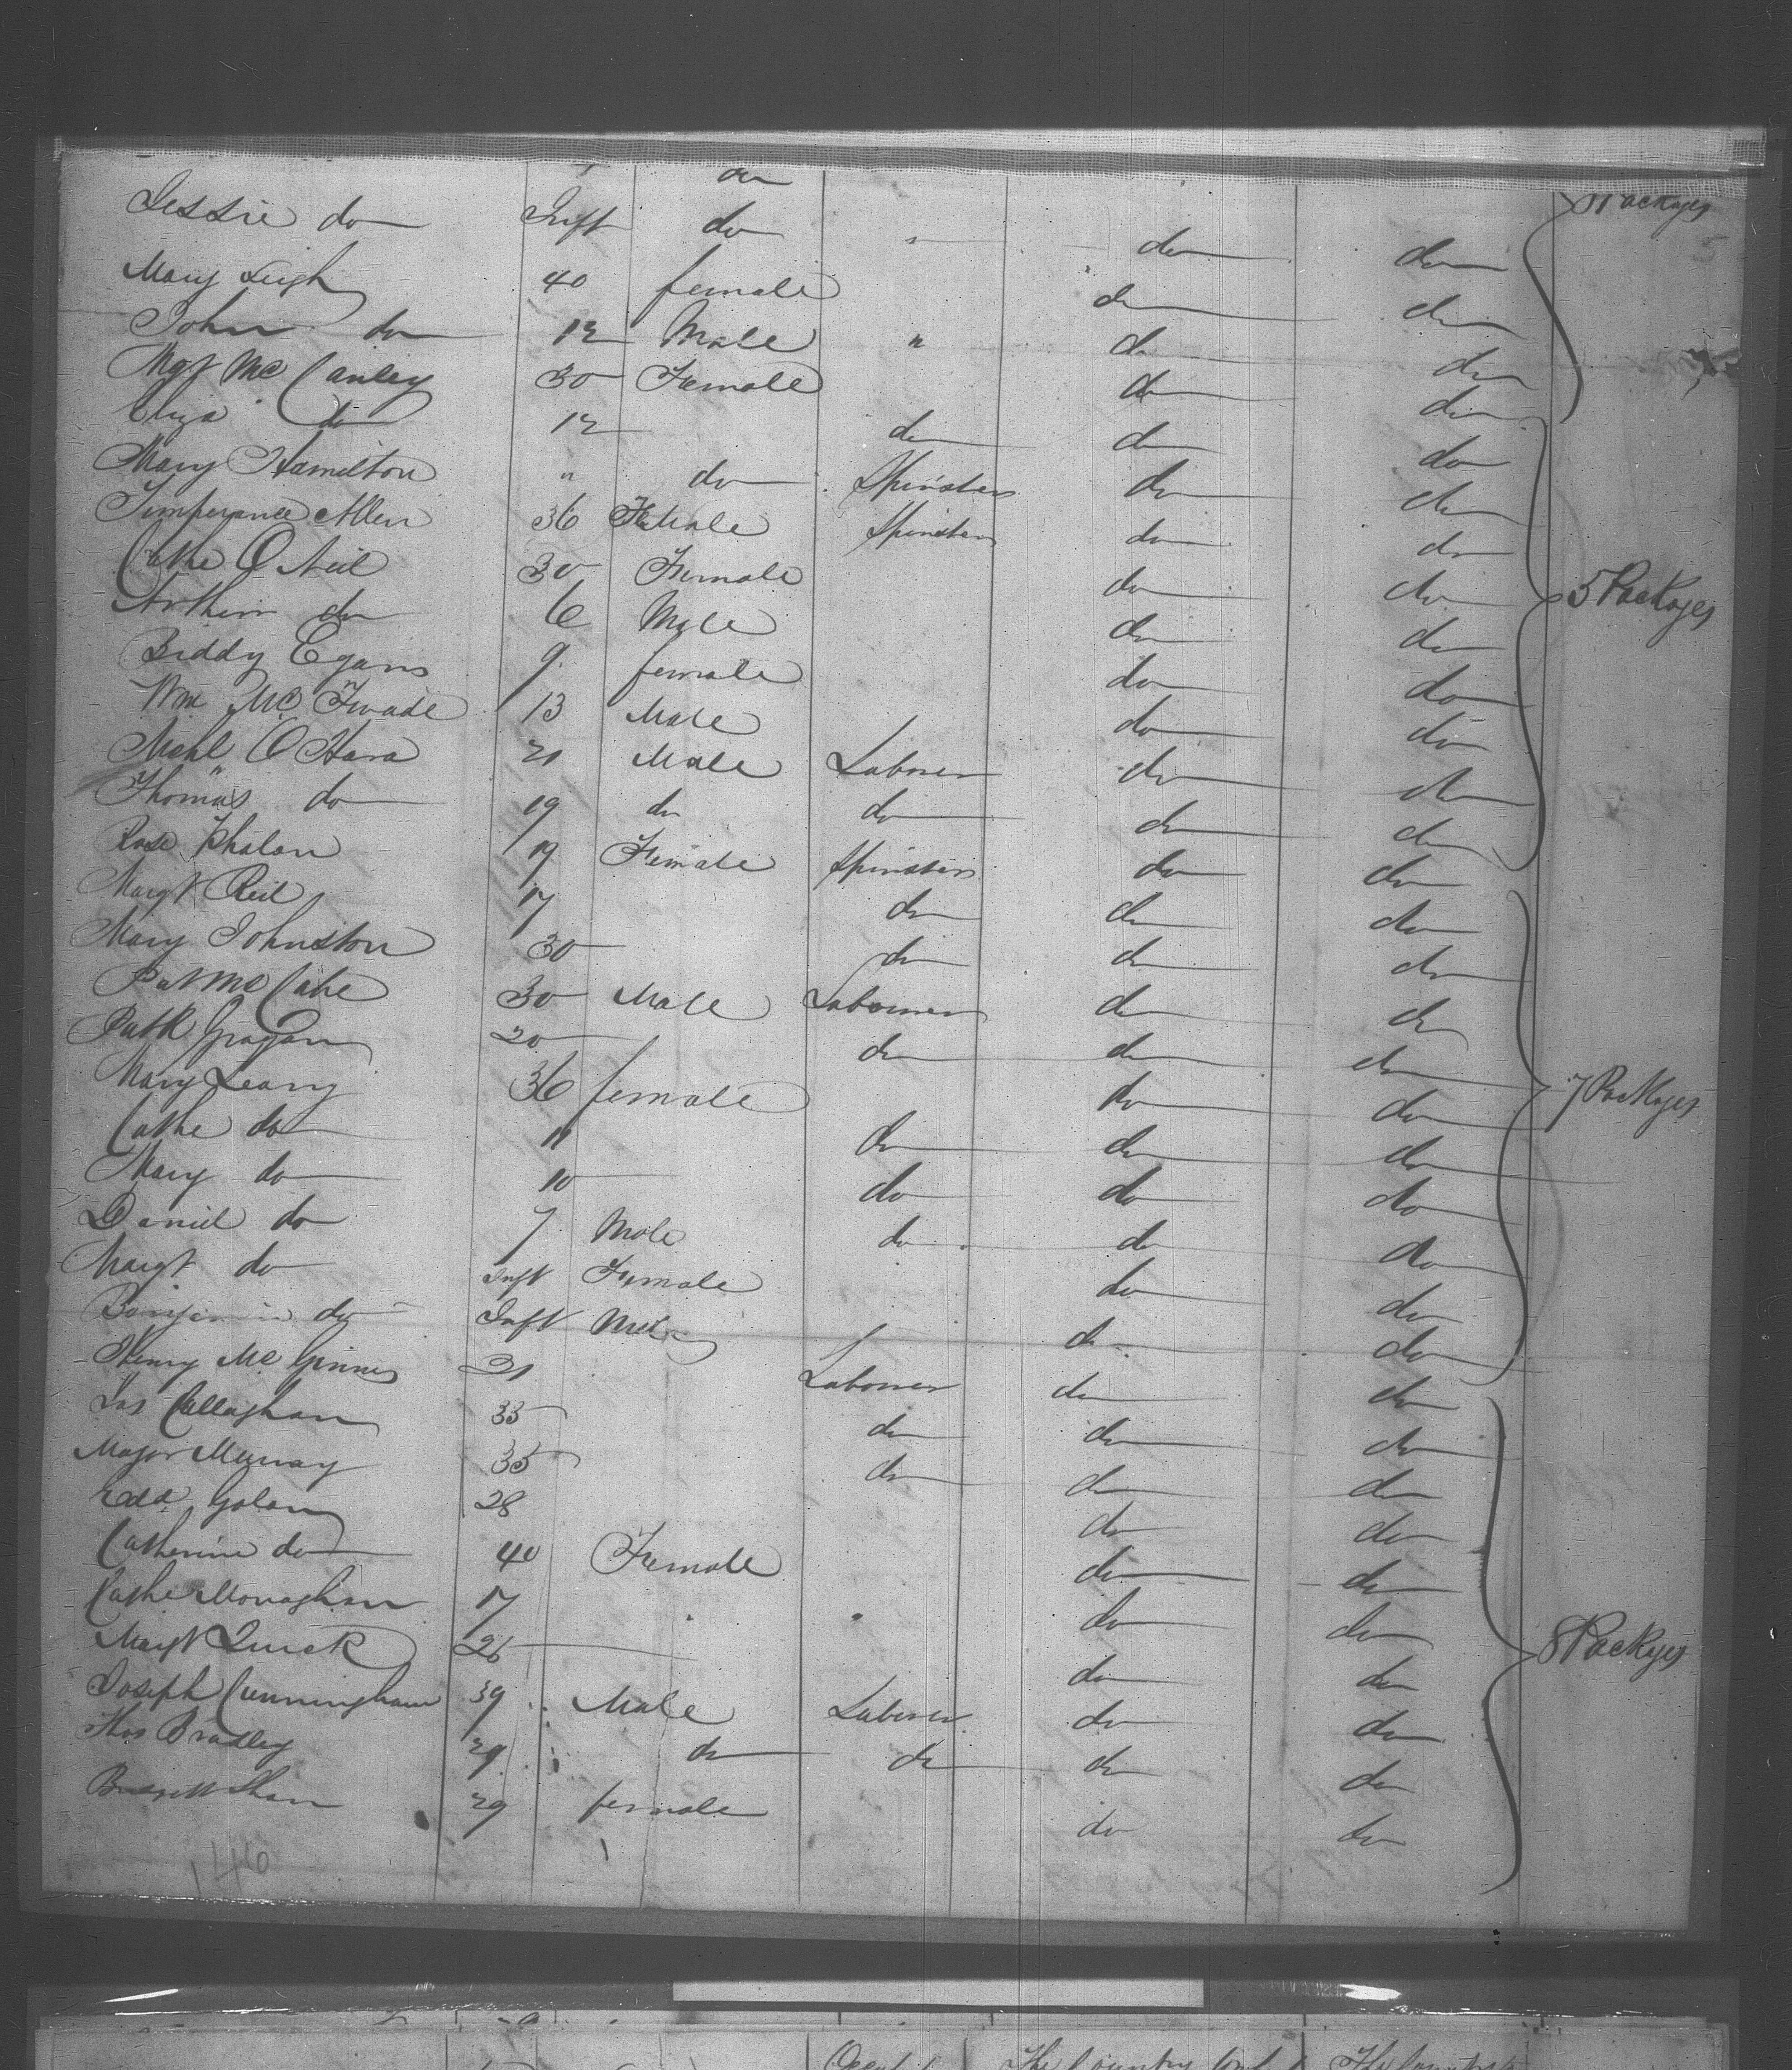 do Packages
Jessie do Inft do " do do
Mary Leigh 40 female do do
John do 12 Male " do do
Mgt McCauley 30 Female do do
Eliza do 12 do do do
Mary Hamilton " do Spinster do do
Temperance Allen 36 Female Spinster do do
Cathe O Neil 30 Female do do 5 Packages
Arthur do 6 Male do do
Biddy Egans 9 female do do
Wm Mc 13 Male do do
Mchl O Hara 21 Male Laborer do do
Thomas do 19 do do do do
Rose Phalan 19 Female Spinster do do
Margt Reil 17 do do do
Mary Johnston 30 do do do
Pat McCabe 30 Male Labourer do do
Patk Grogan 20 do do do
Mary Leary 36 female do do 7 Packages
Cathe do 11 do do do
Mary do 10 do do do
Daniel do 7 Male do do do
Margt do Inft Female do do
Benjamin do Inft Male do do
Henry McGinnes 21 Labourer do do
Jas Callaghan 35 do do do
Major Murray 35 do do do
Edd Golan 28 do do
Catherine do 40 Female do do
Cathe Monaghan 17 " do do
Margt Quick 26 do do 8 Packages
Joseph Cunningham 39 Male Laborer do do
Thos Bradley 29 do do do do
29 female do do
146
The Country